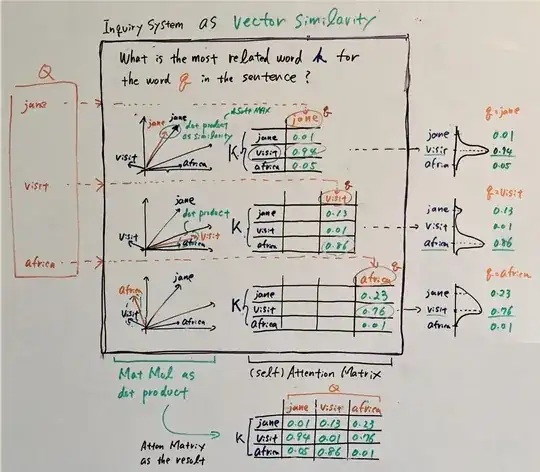 Inquiry System as vector similarity
What is the most related word k for
the word q in the sentence ?
Q
jane
visit
africa
jane
jane
visit
africa
dot product
as similarity
& Soft MAX
q
jane
K
jane 0.01
visit 0.94
africa 0.05
q=jane
jane 0.01
visit 0.94
africa 0.05
jane
dot product
visit
visit
africa
q
visit
K
jane 0.13
visit 0.01
africa 0.86
q=visit
jane 0.13
visit 0.01
africa 0.86
africa
jane
visit
africa
q
africa
K
jane 0.23
visit 0.76
africa 0.01
q=africa
jane 0.23
visit 0.76
africa 0.01
Mat Mul as
dot product
(self) Attention Matrix
Atten Matrix
as the result
Q
jane visit africa
K
jane 0.01 0.13 0.23
visit 0.94 0.01 0.76
africa 0.05 0.86 0.01